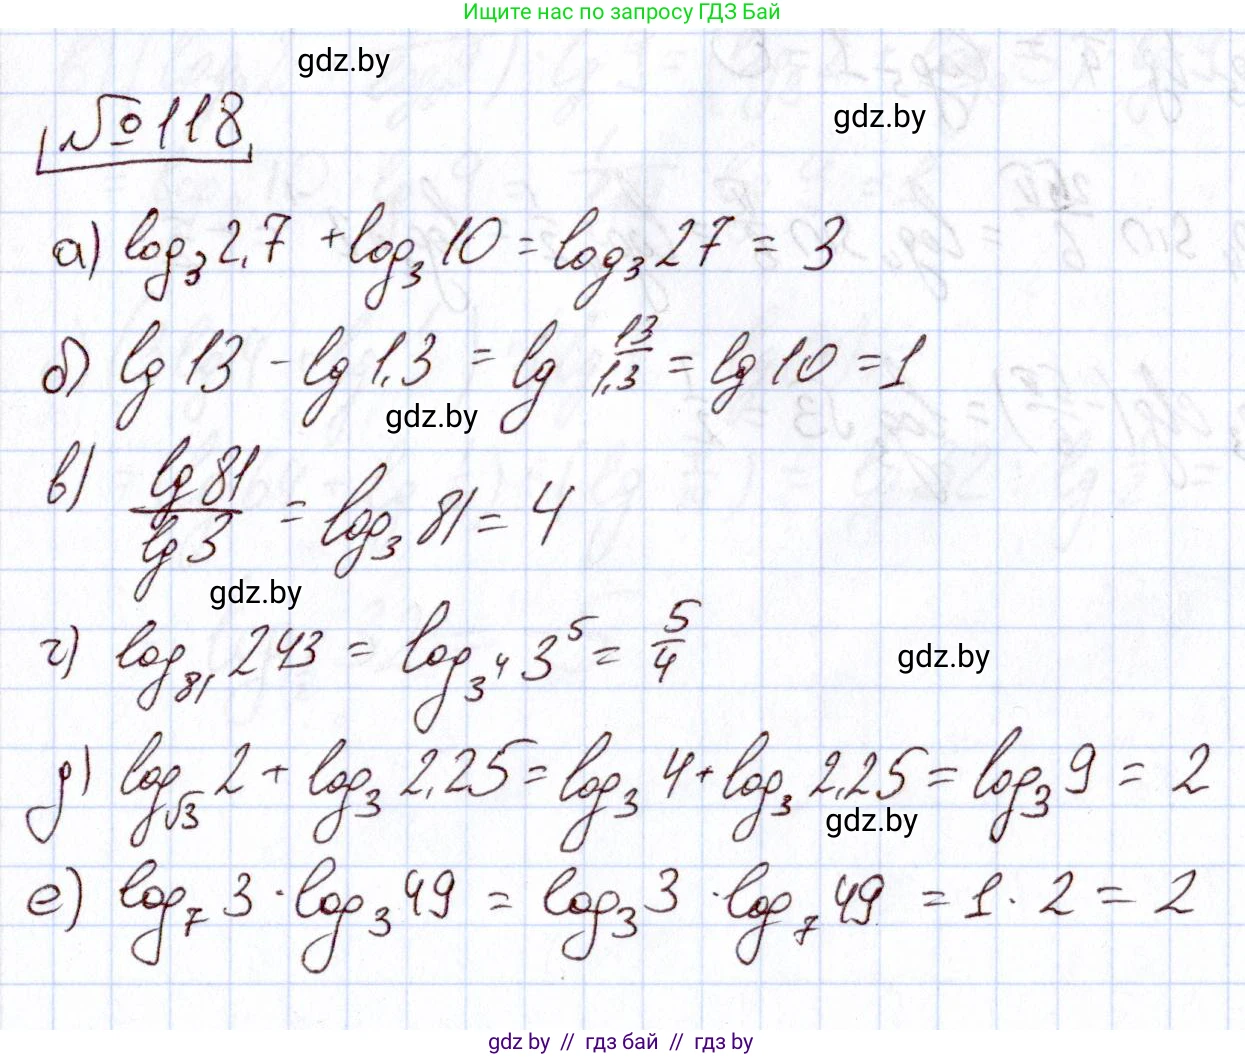 Ищите нас по запросу ГДЗ Бай
gdz.by
№118
gdz.by
а) log₃ 2,7 + log₃ 10 = log₃ 27 = 3
б) lg 13 - lg 1,3 = lg 13/1,3 = lg 10 = 1
gdz.by
в) lg 81 / lg 3 = log₃ 81 = 4
gdz.by
г) log₈₁ 243 = log₃⁴ 3⁵ = 5/4
gdz.by
д) log√3 2 + log₃ 2,25 = log₃ 4 + log₃ 2,25 = log₃ 9 = 2
gdz.by
е) log₇ 3 · log₃ 49 = log₃ 3 · log₇ 49 = 1 · 2 = 2
gdz by // гдз бай // гдз by